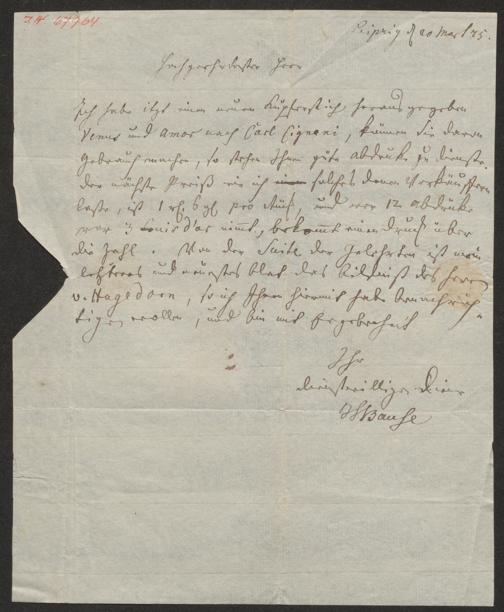 IN 67964
Leipzig d 20 Mart 75.
Hochgeehrtester Herr
Ich habe itzt einen neuen Kupferstich heraus gegeben
Venus und Amor nach Carl Cignani, können Sie davon
Gebrauch machen, so stehen Ihnen gute abdrüke zu dienste.
der nächste Preiß wie ich solches denen Verkäuffern
lasse, ist 1 rh 6 gl pro Stück, und wer 12 abdrüke
oder Louis d'or nimt, bekomt einen druck über
die Zahl. Von der Suite der Gelehrten ist mein
letzteres und neuestes blat das Bildniß des Herrn
v. Hagedorn, so ich Ihnen hiermit habe benachrich-
tigen wollen, und bin mit Ergebenheit
Ihr
dienstwilliger Diener
JFBause